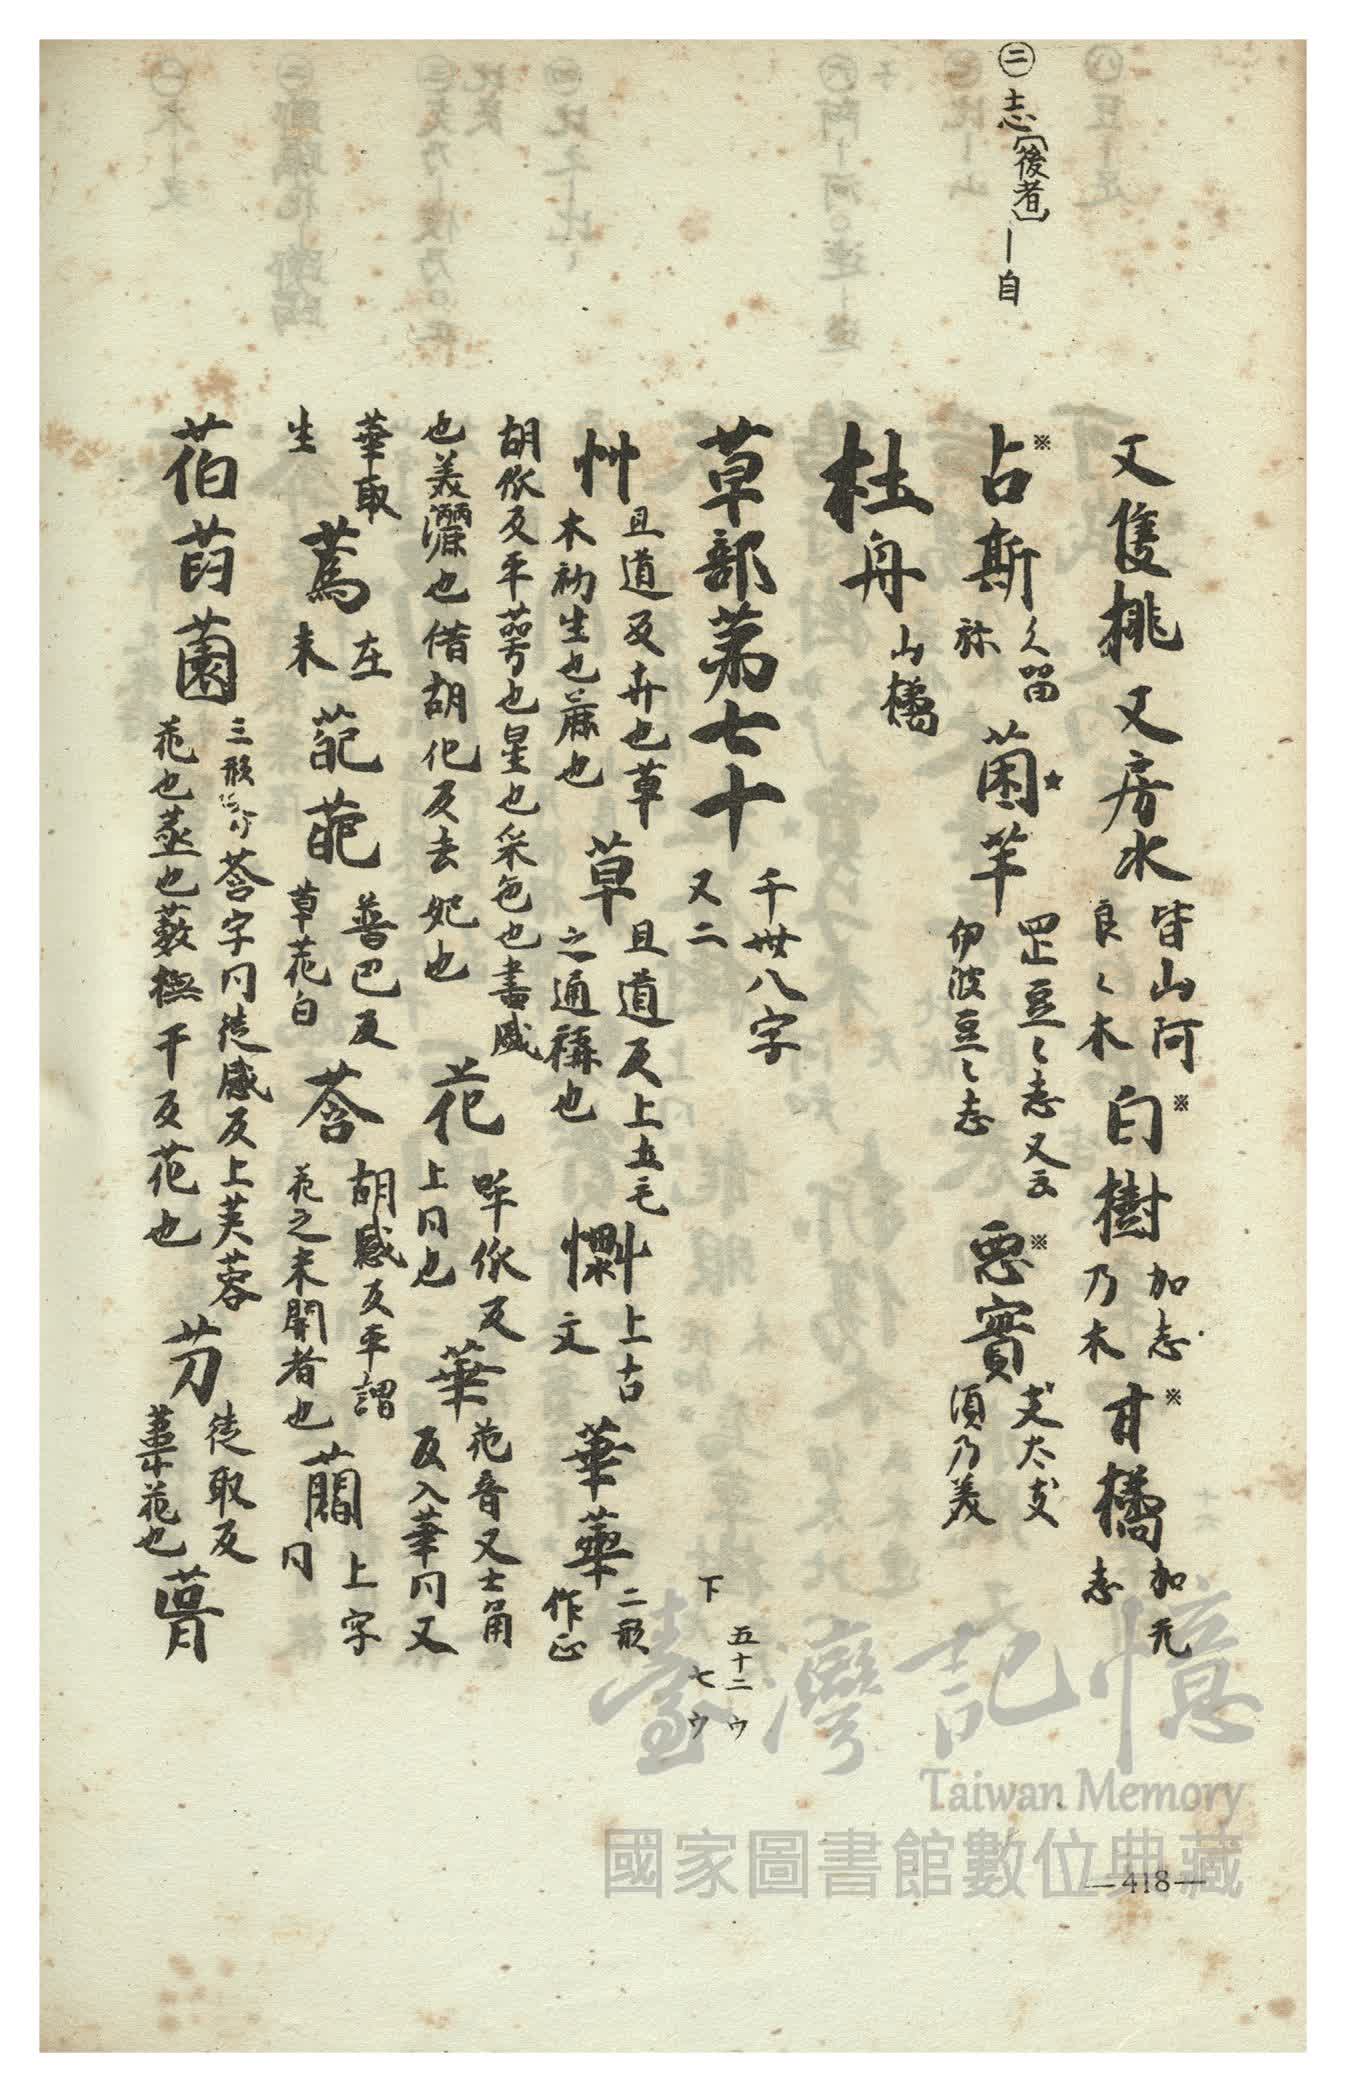 ㊁志〔後者〕—自
又隻桃又房水皆山阿
良〻木白樹加志
乃木甘橘加无
志
占斯久留
祢菌芋罡豆〻志又云
伊波豆〻志惡實支太支
須乃美
杜舟山橘
草部第七十千卅八字
又二
下 五十二ウ
七ウ
艸且道反卉也草
木初生也蔴也草且道反上立毛
之通稱也上古
文華二形
作正
胡依反平萼也星也采色也書感花呼依反
上同也華花音又士角
反入華同又
也美灑也借胡化反去妃也
華取
生蔿左
未葩葩普巴反
草花白莟胡感反平謂
花之未開者也上字
同
三形莟字同徒感反上芙蓉
花也蒸也藪橆干反花也芀徒取反
藁花也
臺灣記憶
Taiwan Memory
國家圖書館數位典藏
—418—